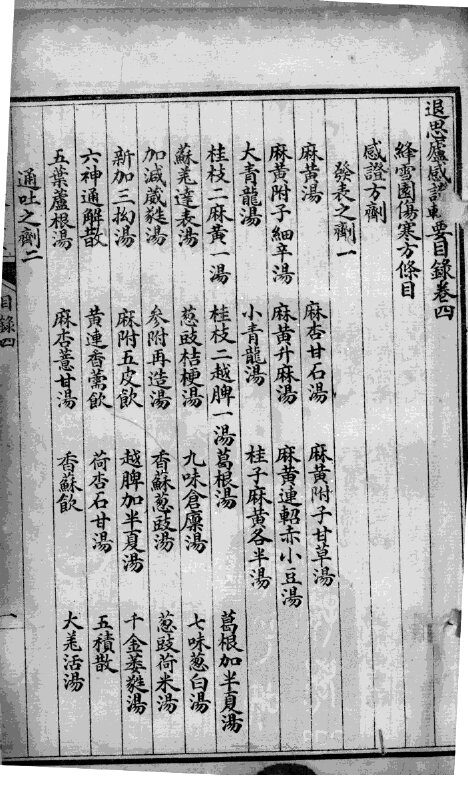 退思廬感證輯要目錄卷四
絳雪園傷寒方條目
感證方劑
發表之劑一
麻黃湯 麻杏甘石湯 麻黃附子甘草湯
麻黃附子細辛湯 麻黃升麻湯 麻黃連軺赤小豆湯
大青龍湯 小青龍湯 桂子麻黃各半湯
桂枝二麻黃一湯 桂枝二越脾一湯 葛根湯 葛根加半夏湯
蘇羌達表湯 葱豉桔梗湯 九味倉廩湯 七味葱白湯
加減葳蕤湯 參附再造湯 香蘇葱豉湯 葱豉荷米湯
新加三拗湯 麻附五皮飲 越脾加半夏湯 千金葳蕤湯
六神通解散 黃連香薷飲 荷杏石甘湯 五積散
五葉蘆根湯 麻杏薏甘湯 香蘇飲 大羌活湯
通吐之劑二
目錄四
一